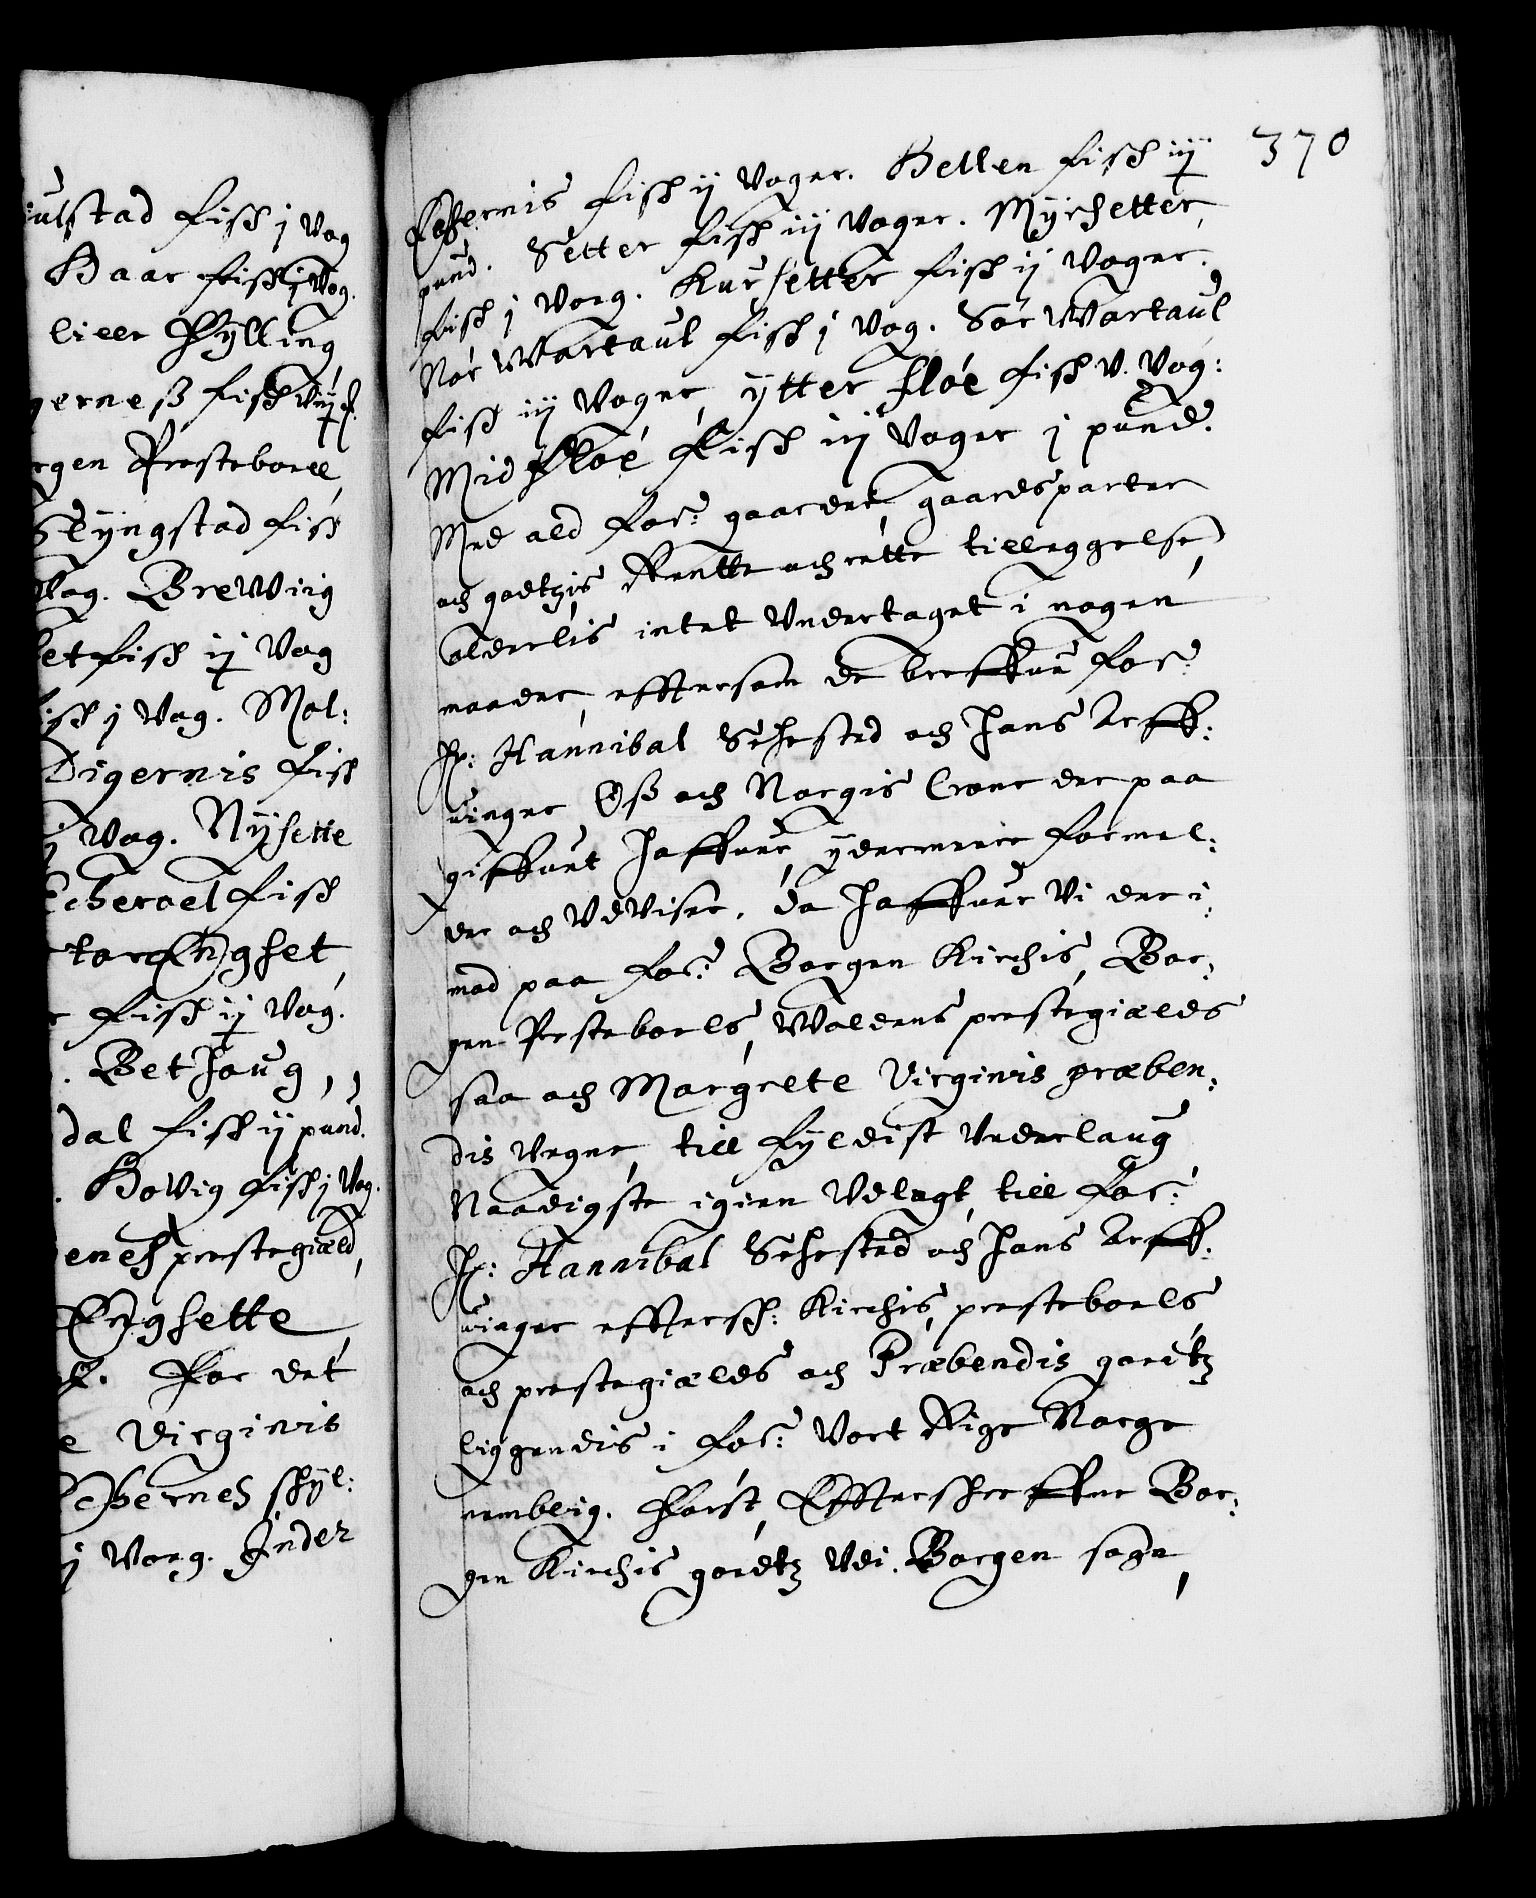 ulstad fisk j Vog
Haar fisk j Vog.
lille Fylling
gerneß fisk
rgen Presteborll
Slyngstad fisk
Vog. Brewiig
et fisk ij Vog
fisk j Vog. Mol:
Digernis fisk
j Vog. Nysette
Echeroel fisk
Engset
fisk ij Vog.
. Bethaug,
dal fisk ij pund.
. Hovig fisk j Vog.
enes prestegiæld,
Engsette
For det
e Virginis
bernes skyl:
j Vorg. Inder
370
fisk ij Voger. Hellen fisk iij
pund. Setter fisk iij Voger. Myrsetter,
fisk j Vorg. Kursetter fisk ij Voger.
Nór Wartaul fisk j Vog. Sór Wartaul
fisk iij Voger, ytter flóe fisk v. Vog:
Mid flóe fisk iij Voger j pund.
Med ald for: gaarder, gaardsparter
och godtzis Rentte och rette tilleggelse,
alderlis intet Undertaget i nogen
maader, efftersom de breffue for:
Hr: Hannibal Sehested och hans Arff:
uinger, Oß och Norgis Crone der paa
giffuet haffuer, ydermeere formel:
der och Udviser, da haffuer Vi der i:
mod paa for: Borgen Kirchis, Bor:
gen Presteborls, Woldens prestegiælds
saa och Margrete Virginis præben:
dis Vegne, till fyldist Vederlaug
Naadigste igien Udlagt, till for:
Hr: Hannibal Sehested och hans Arff:
uinger effterschr: Kirchis, presteborls
och prestegiælds och Præbendis goedtz
liggendis i for: Vort Rige Norge
nemblig. Først, Effterschreffne Bor:
gen Kirchis goedtz Udi Borgen sogn,